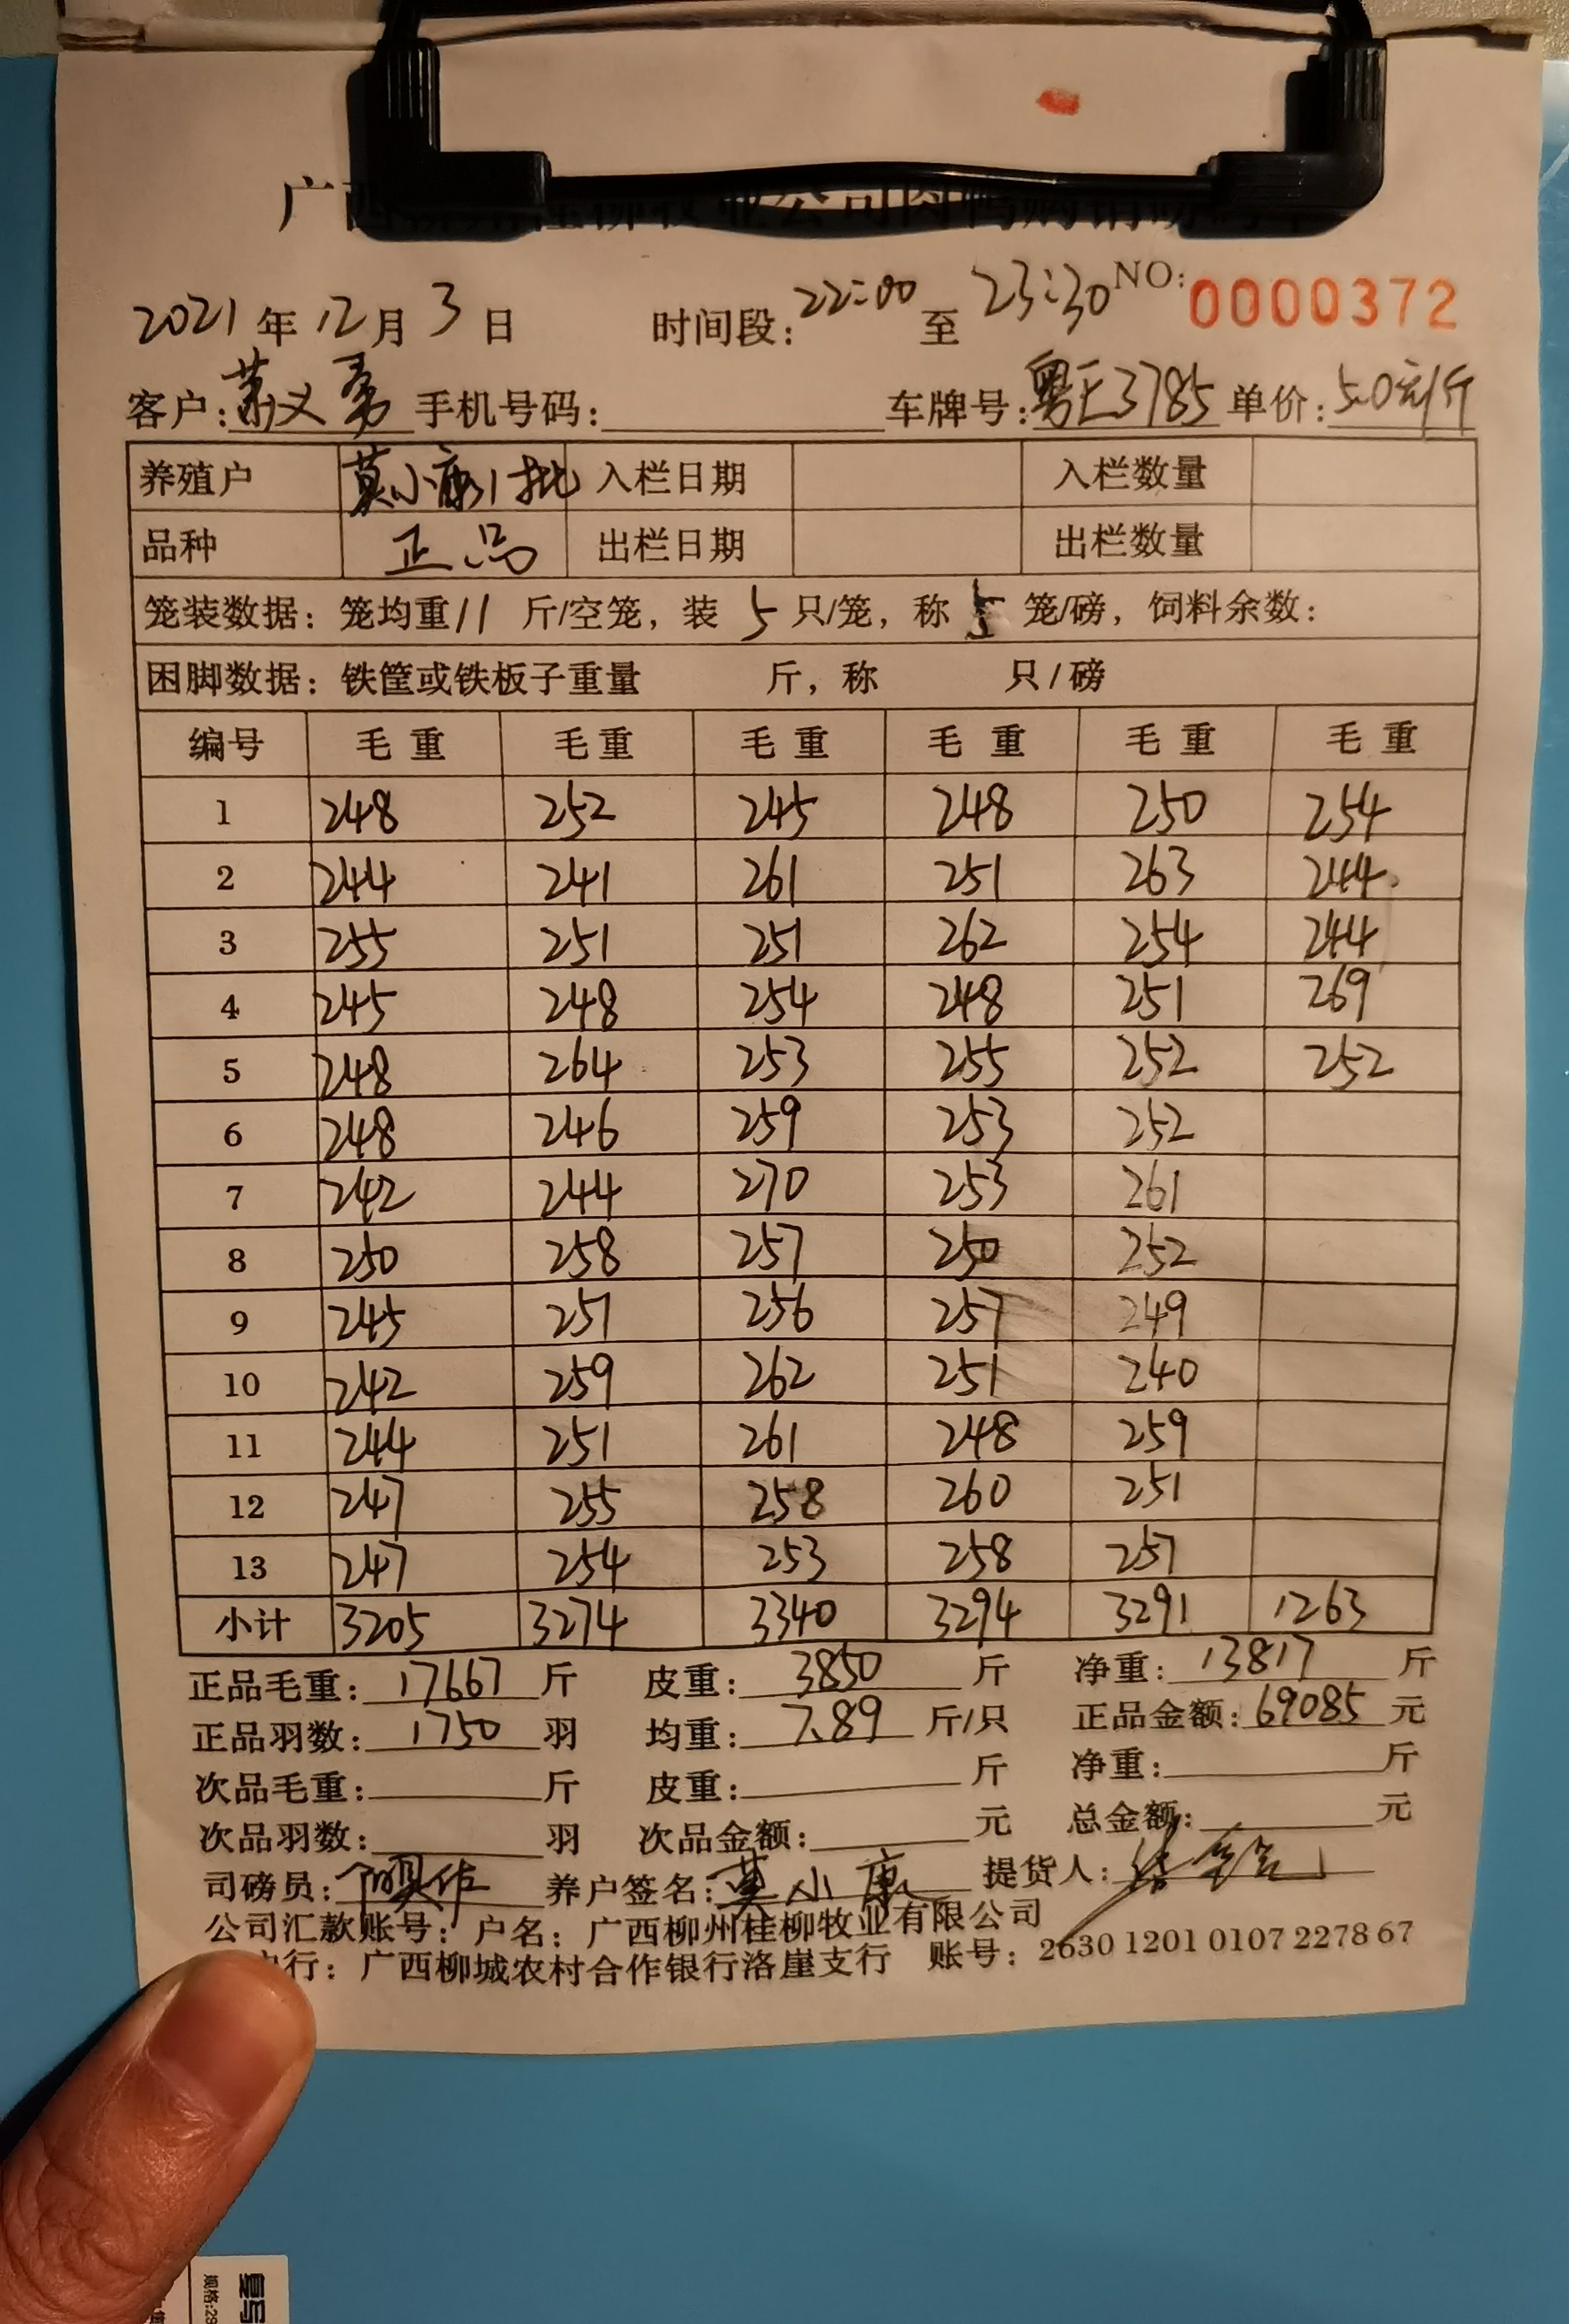 2021年12月3日 时间段：22:00至23:30 NO：0000372
客户：萧义勇 手机号码： 车牌号：粤E3785 单价：5.0元/斤
养殖户 莫小康1批 入栏日期 入栏数量
品种 正品 出栏日期 出栏数量
笼装数据：笼均重11斤/空笼，装5只/笼，称5笼/磅，饲料余数：
困脚数据：铁筐或铁板子重量 斤，称 只/磅
编号 毛重 毛重 毛重 毛重 毛重 毛重
1 248 252 245 248 250 254
2 244 241 261 251 263 244
3 255 251 251 262 254 244
4 245 248 254 248 251 269
5 248 264 253 255 252 252
6 248 246 259 253 252
7 242 244 270 253 261
8 250 258 257 250 252
9 245 251 256 257 249
10 242 259 262 251 240
11 244 251 261 248 259
12 247 255 258 260 251
13 247 254 253 258 257
小计 3205 3274 3340 3294 3291 1263
正品毛重：17667斤 皮重：3850斤 净重：13817斤
正品羽数：1750羽 均重：7.89斤/只 正品金额：69085元
次品毛重： 斤 皮重： 斤 净重： 斤
次品羽数： 羽 次品金额： 元 总金额： 元
司磅员： 养户签名：莫小康 提货人：
公司汇款账号：户名：广西柳州桂柳牧业有限公司
行：广西柳城农村合作银行洛崖支行 账号：2630 1201 0107 2278 67